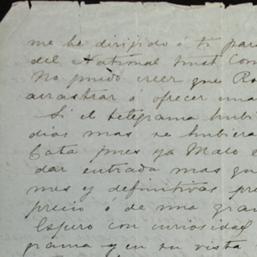 me he dirijido á ti par
del National Trust Com
No puedo creer que Ro
arrastrar ó ofrecer una
Si el telegrama hubi
dias mas se hubiera
Cata pues ya Malo e
dar entrada mas qu
mes y definitivas pr
precio ó de una gran
Espero con curiosidad
grama y en su vista